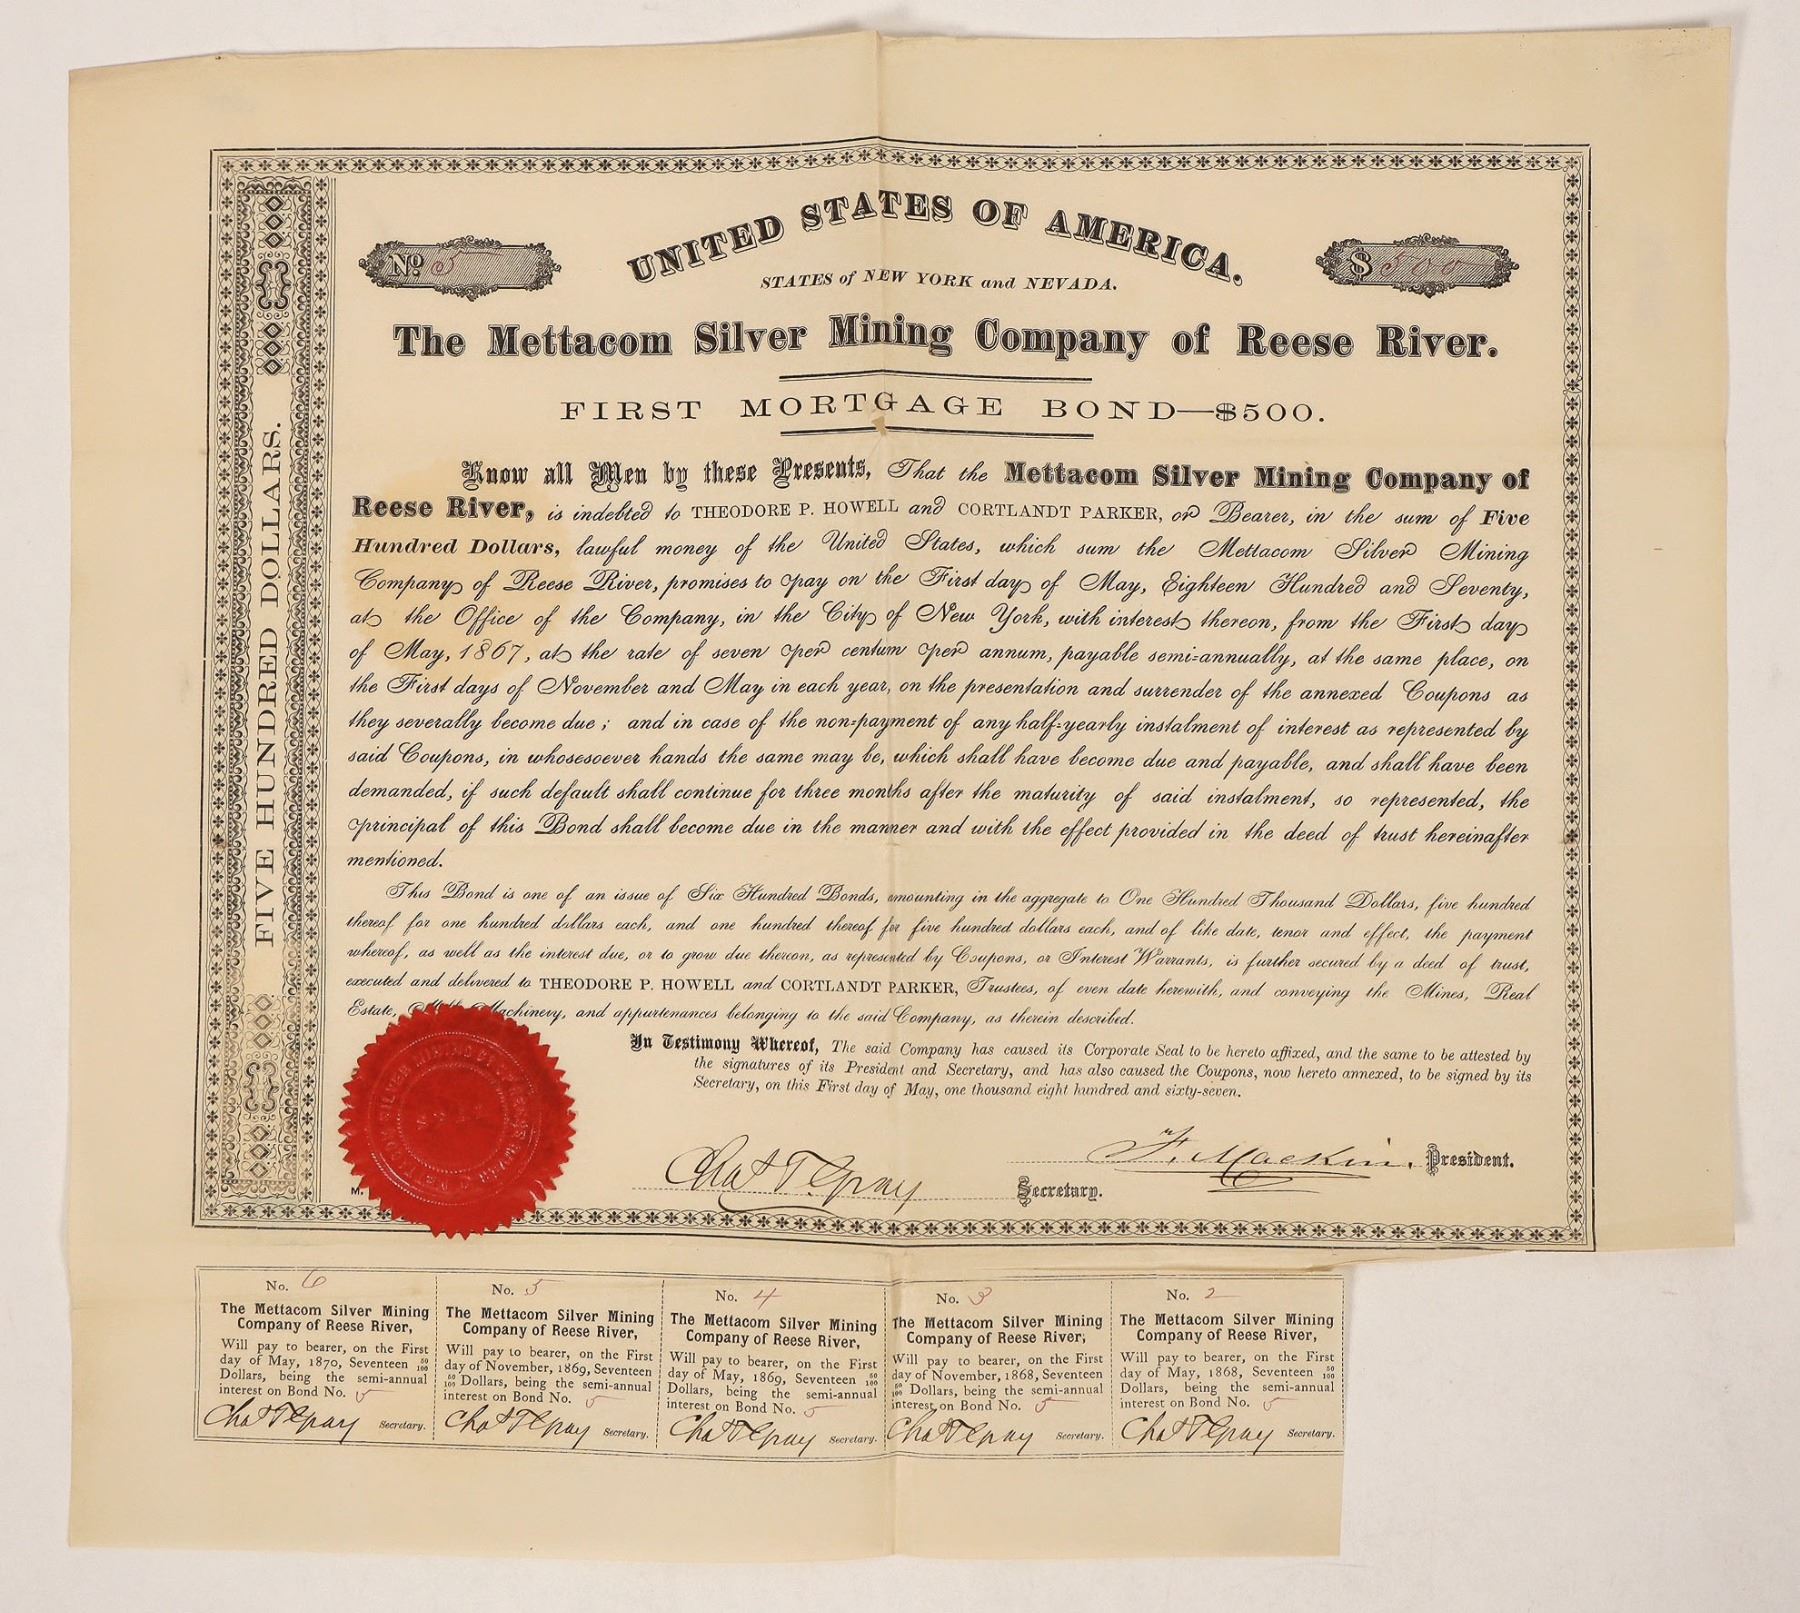 UNITED STATES OF AMERICA.
No. 5
$500
STATES of NEW YORK and NEVADA.
The Mettacom Silver Mining Company of Reese River.
FIRST MORTGAGE BOND—$500.
FIVE HUNDRED DOLLARS.
Know all Men by these Presents, That the Mettacom Silver Mining Company of
Reese River, is indebted to THEODORE P. HOWELL and CORTLANDT PARKER, or Bearer, in the sum of Five
Hundred Dollars, lawful money of the United States, which sum the Mettacom Silver Mining
Company of Reese River, promises to pay on the First day of May, Eighteen Hundred and Seventy,
at the Office of the Company, in the City of New York, with interest thereon, from the First day
of May, 1867, at the rate of seven per centum per annum, payable semi-annually, at the same place, on
the First days of November and May in each year, on the presentation and surrender of the annexed Coupons as
they severally become due; and in case of the non-payment of any half-yearly instalment of interest as represented by
said Coupons, in whosesoever hands the same may be, which shall have become due and payable, and shall have been
demanded, if such default shall continue for three months after the maturity of said instalment, so represented, the
principal of this Bond shall become due in the manner and with the effect provided in the deed of trust hereinafter
mentioned.
This Bond is one of an issue of Six Hundred Bonds, amounting in the aggregate to One Hundred Thousand Dollars, five hundred
thereof for one hundred dollars each, and one hundred thereof for five hundred dollars each, and of like date, tenor and effect, the payment
whereof, as well as the interest due, or to grow due thereon, as represented by Coupons, or Interest Warrants, is further secured by a deed of trust,
executed and delivered to THEODORE P. HOWELL and CORTLANDT PARKER, Trustees, of even date herewith, and conveying the Mines, Real
Estate, Machinery, and appurtenances belonging to the said Company, as therein described.
In Testimony Whereof, The said Company has caused its Corporate Seal to be hereto affixed, and the same to be attested by
the signatures of its President and Secretary, and has also caused the Coupons, now hereto annexed, to be signed by its
Secretary, on this First day of May, one thousand eight hundred and sixty-seven.
F. Mackin. President.
Chas T Gray Secretary.
No. 6
The Mettacom Silver Mining
Company of Reese River,
Will pay to bearer, on the First
day of May, 1870, Seventeen 50/100
Dollars, being the semi-annual
interest on Bond No. 5
Chas T Gray Secretary.
No. 5
The Mettacom Silver Mining
Company of Reese River,
Will pay to bearer, on the First
day of November, 1869, Seventeen
50/100 Dollars, being the semi-annual
interest on Bond No. 5
Chas T Gray Secretary.
No. 4
The Mettacom Silver Mining
Company of Reese River,
Will pay to bearer, on the First
day of May, 1869, Seventeen 50/100
Dollars, being the semi-annual
interest on Bond No. 5
Chas T Gray Secretary.
No. 3
The Mettacom Silver Mining
Company of Reese River,
Will pay to bearer, on the First
day of November, 1868, Seventeen
50/100 Dollars, being the semi-annual
interest on Bond No. 5
Chas T Gray Secretary.
No. 2
The Mettacom Silver Mining
Company of Reese River,
Will pay to bearer, on the First
day of May, 1868, Seventeen 50/100
Dollars, being the semi-annual
interest on Bond No. 5
Chas T Gray Secretary.